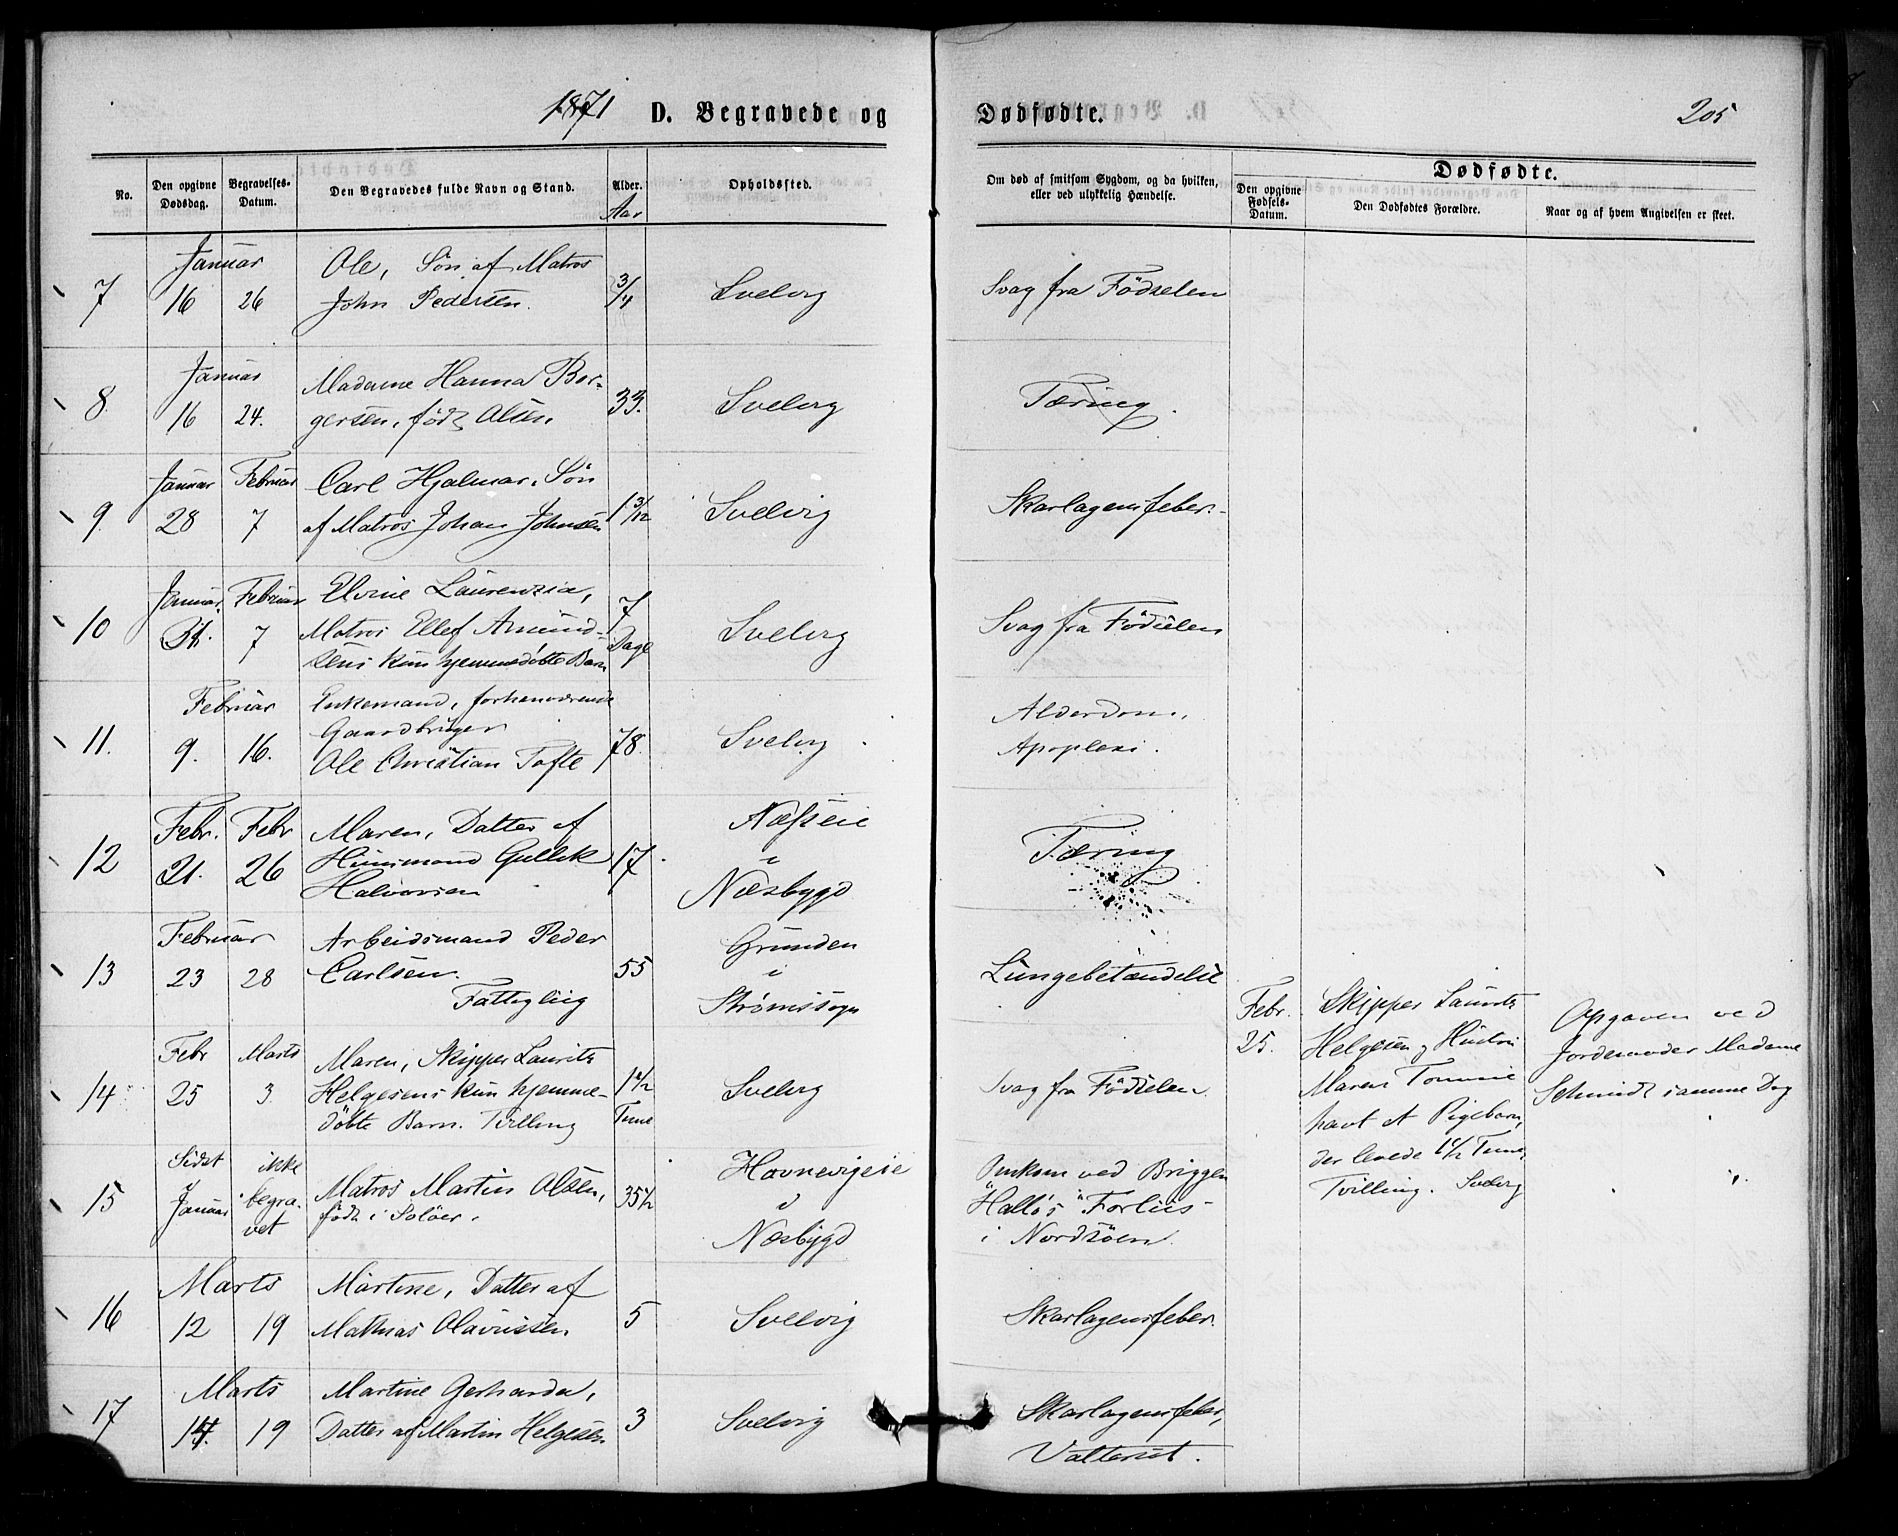 1871 D. Begravede og Dødfødte. 205
No.
Den opgivne Dødsdag.
Begravelses-Datum.
Den Begravedes fulde Navn og Stand.
Alder. Aar
Opholdssted.
Om død af smitsom Sygdom, og da hvilken, eller ved ulykkelig Hændelse.
Dødfødte.
Den opgivne Fødsels-Datum.
Den Dødfødtes Forældre.
Naar og af hvem Angivelsen er skeet.
7
Januar
16 26
Ole, Søn af Matros
John Pedersen.
3/4
Svelvig
Svag fra Födselen
8
Januar
16 24.
Madame Hanna Bor-
gersen, född Olsen
33.
Svelvig
Tæring.
9.
Januar Februar
28 7
Carl Hjalmar, Sön
af Matros Johan Johnsen
1 3/12
Svelvig
Skarlagensfeber.
10
Januar Februar
31. 7
Elvine Laurenzia,
Matros Ellef Amund-
sens kun hjemmedöbte Barn
7 Dage
Svelvig
Svag fra Födselen
11.
Februar
9. 16.
Enkemand, forhenværende
Gaardbruger
Ole Christian Tofte
78.
Svelvig
Alderdom,
Apoplexi.
12
Febr. Febr
21. 26
Maren, Datter af
Huusmand Gullik
Halvorsen
17
Næsseie
i
Næsbygd
Tæring
13
Februar
23 28
Arbeidsmand Peder
Carlsen.
Fattiglig
55
Grunden
i
Strømssogn
Lungebetændelse
14
Febr Marts
25 3
Maren, Skipper Laurits
Helgesens kun hjemme-
döbte Barn. Tvilling
1 1/2 Time
Svelvig
Svag fra Födselen.
Febr.
25.
Skipper Laurits
Helgesen og Hustru
Maren Tommine
havt et Pigebarn,
der levede 1 1/2 Time,
Tvilling. Svelvig
Opgaven ved
Jordemoder Madame
Schmidt samme Dag
15
Sidst ikke
Januar begra-
vet
Matros Martin Olsen,
föd i Solöer.
35 1/2
Hovnevigeie
i
Næsbygd
Omkom ved Briggen
"Halló's" Forliis
i Nordsöen.
16
Marts
12 19
Martine, Datter af
Mathias Olavussen
5
Svelvig
Skarlagensfeber.
17
Marts
14. 19
Martine Gerharda,
Datter af Martin Helgesen
3
Svelvig
Skarlagensfeber,
Vattersot.